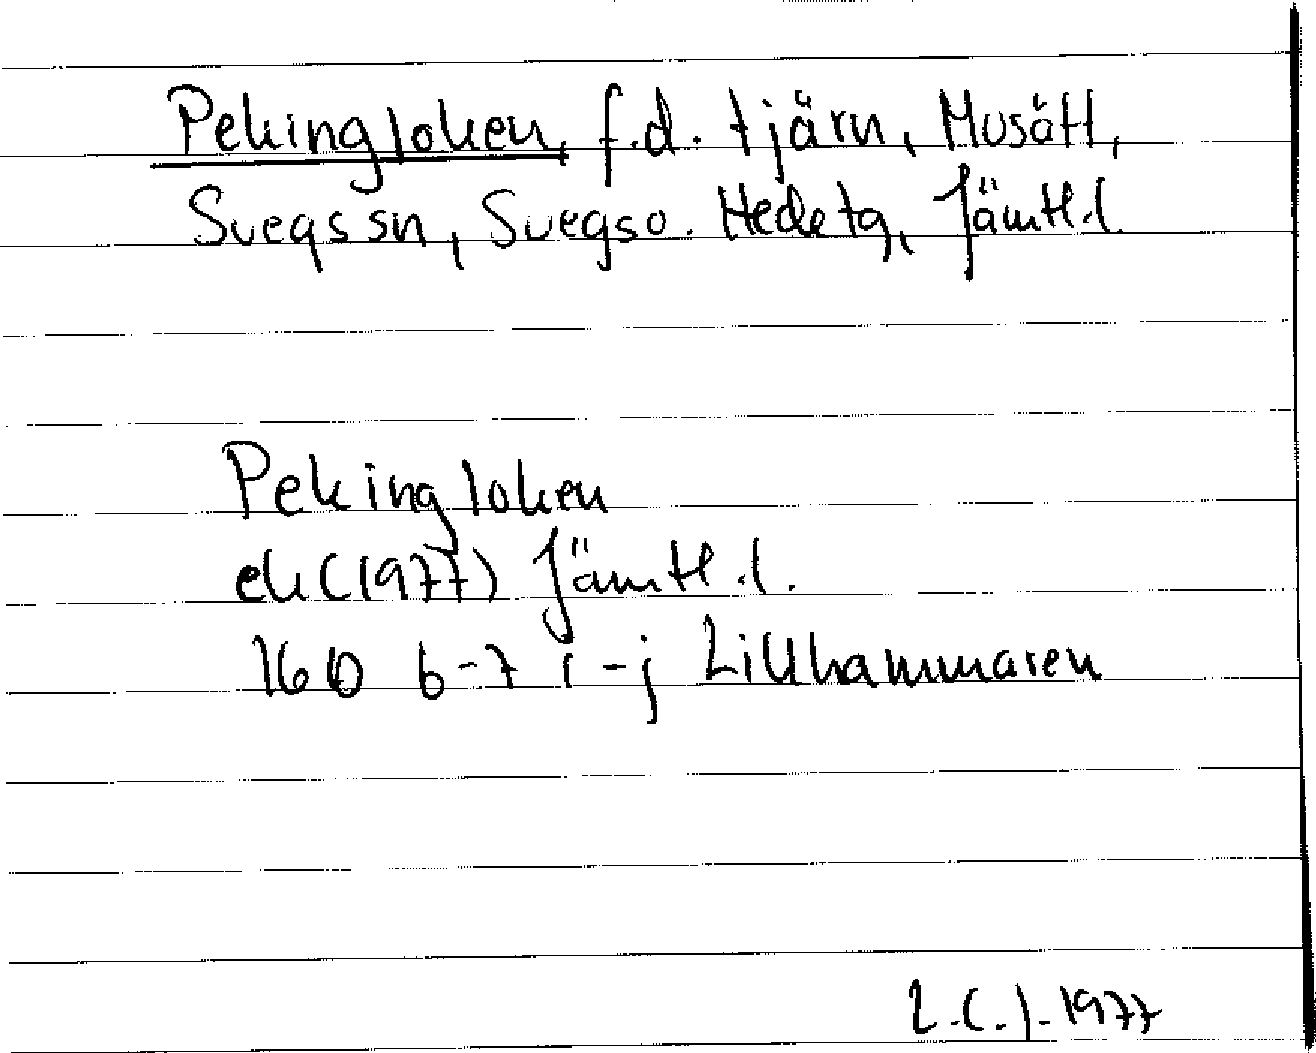 Pekingloken, f.d. tjärn, Mosätt,
Svegs sn, Svegs o. Hede tg, Jämtl.l.
Pekingloken
ek (1977) Jämtl.l.
16D 6-7 i-j Lillhammaren
L.C.J. 1977